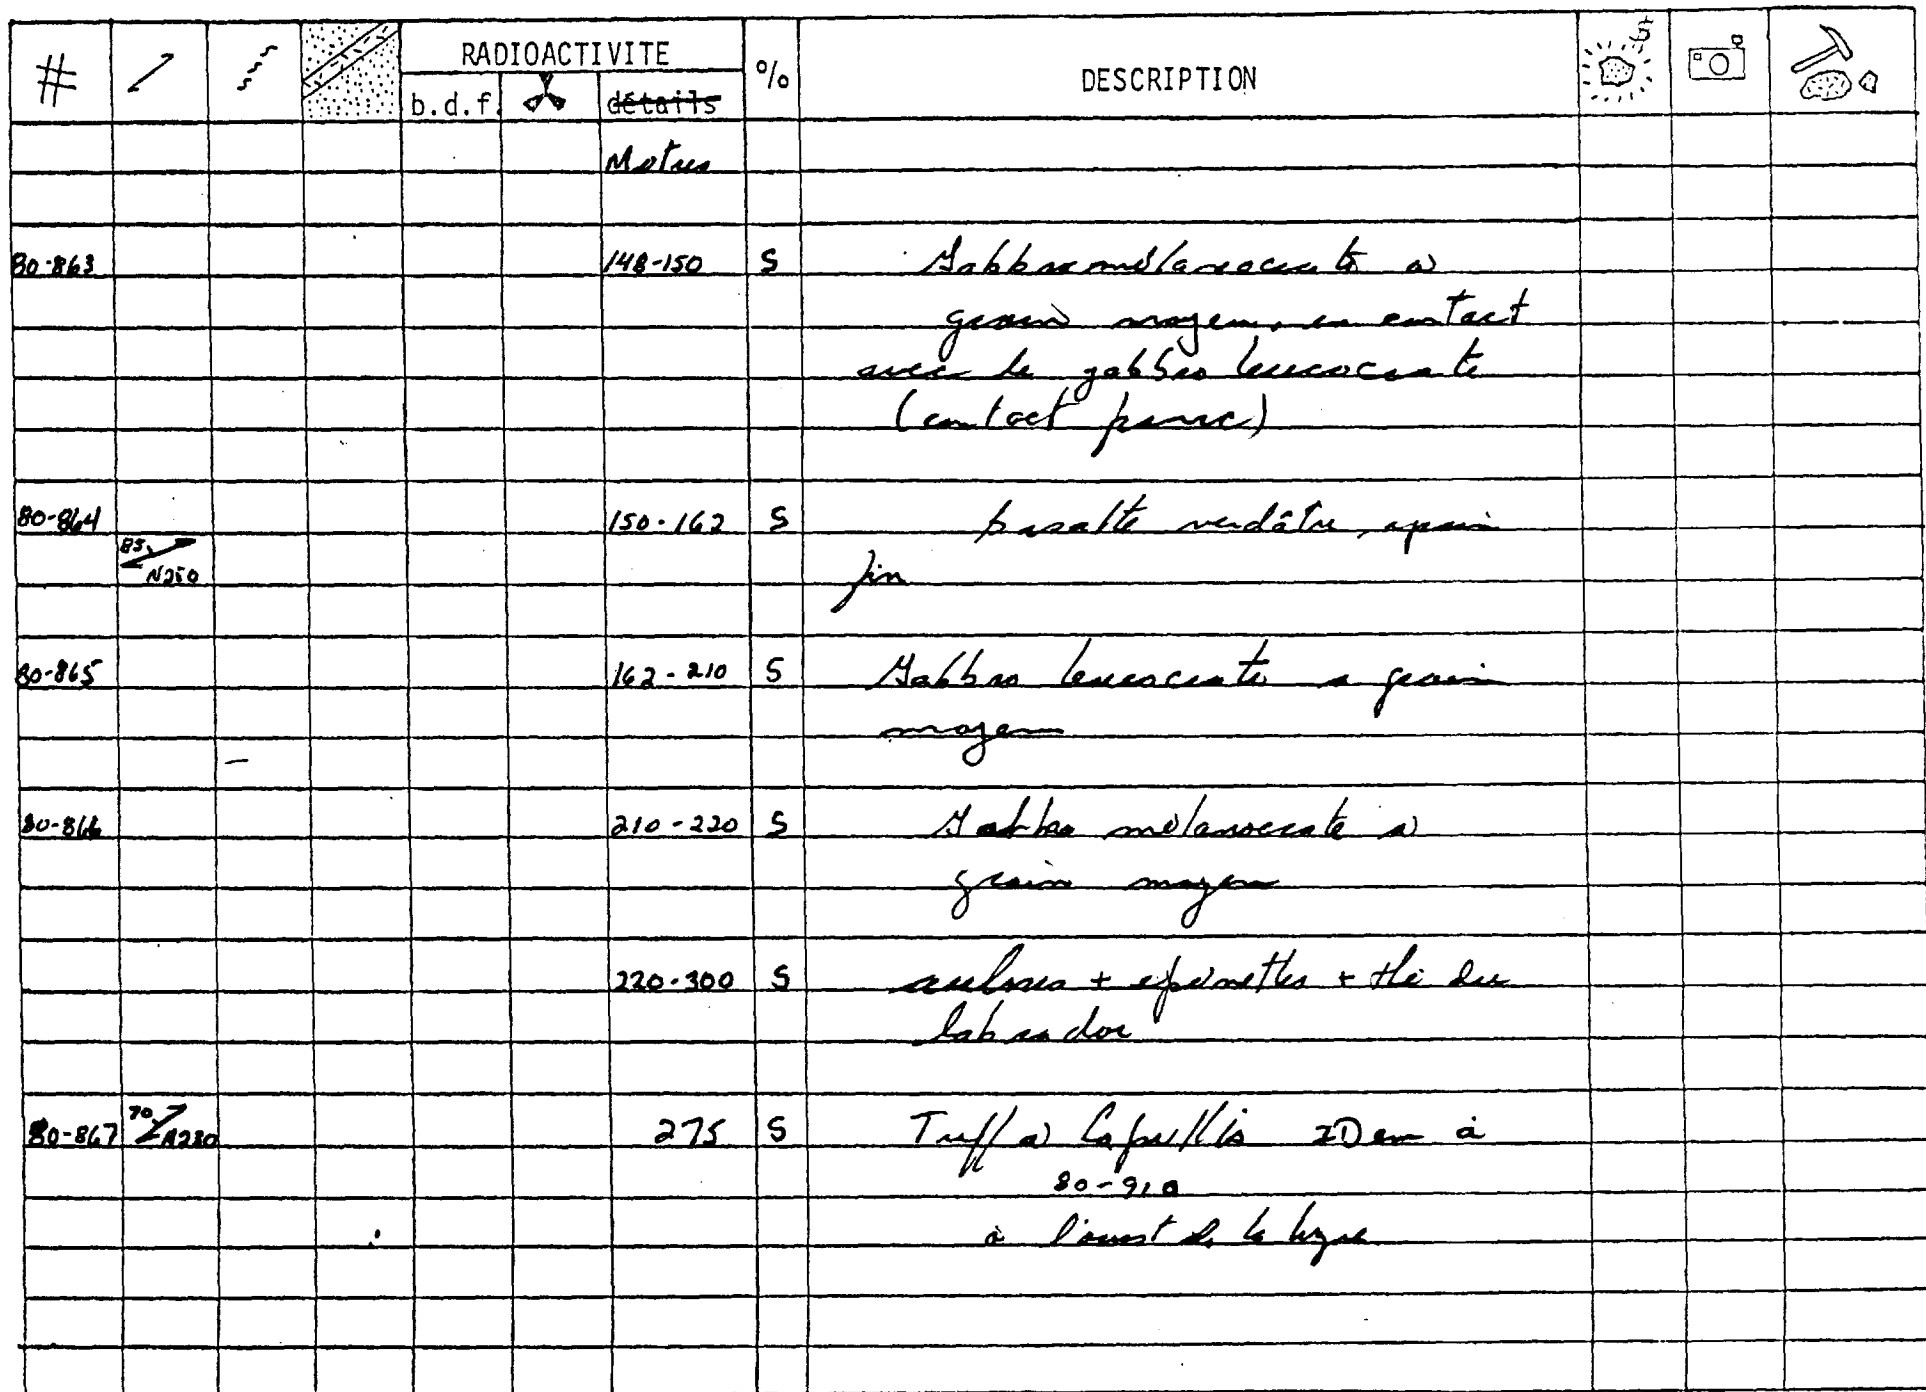 # RADIOACTIVITE % DESCRIPTION
b.d.f. détails
Metres
80-863 148-150 S Gabbro mélanocrate a
grain moyen, en contact
avec le gabbro leucocrate
(contact franc)
80-864 150-162 S basalte verdâtre, a grain
85 N250 fin
80-865 162-210 S Gabbro leucocrate a grain
moyen
80-866 210-220 S Gabbro mélanocrate a
grain moyen
220-300 S + epinettes + thé du
labrador
80-867 70 N280 275 S Tuff a Lapillis IDem à
80-910
à l'ouest de la ligne